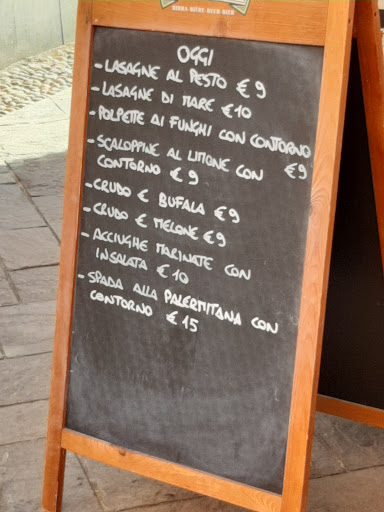 BIRRA BIÈRE BEER BIER
OGGI
- LASAGNE AL PESTO € 9
- LASAGNE DI MARE €10
- POLPETTE AI FUNGHI CON CONTORNO
€9
- SCALOPPINE AL LIMONE CON
CONTORNO € 9
- CRUDO E BUFALA €9
- CRUDO E MELONE €9
- ACCIUGHE MARINATE CON
INSALATA € 10
- SPADA ALLA PALERMITANA CON
CONTORNO € 15